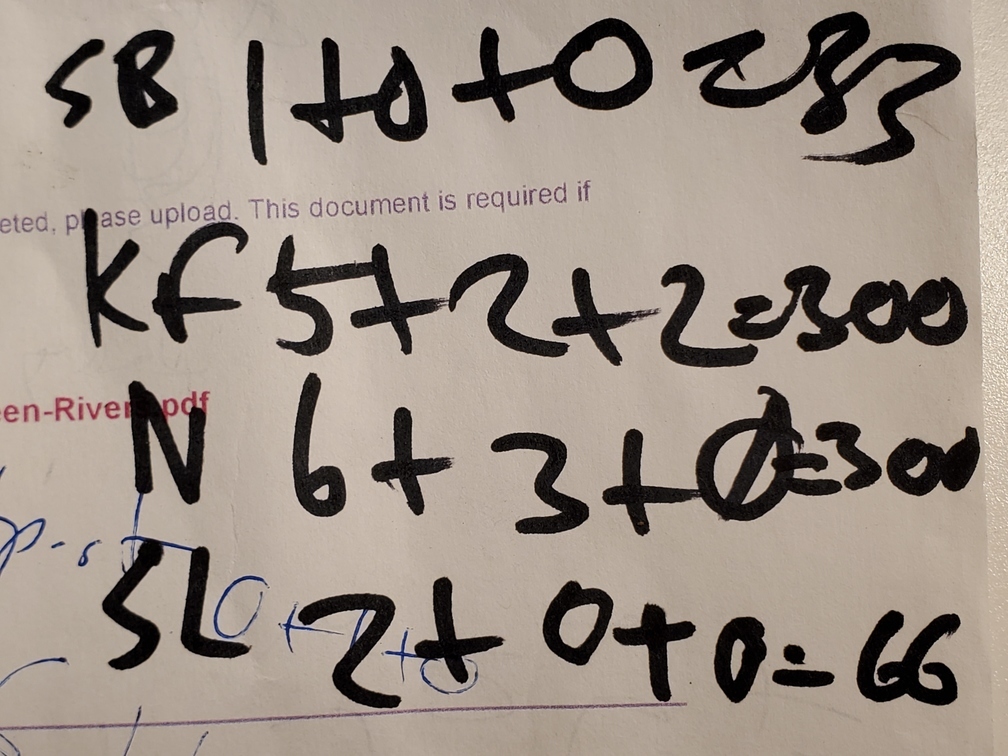 SB 1+0+0=83
eted, please upload. This document is required if
KF 5+2+2=300
een-River.pdf
N 6+3+0=300
SL 2+0+0=66
0+1+0